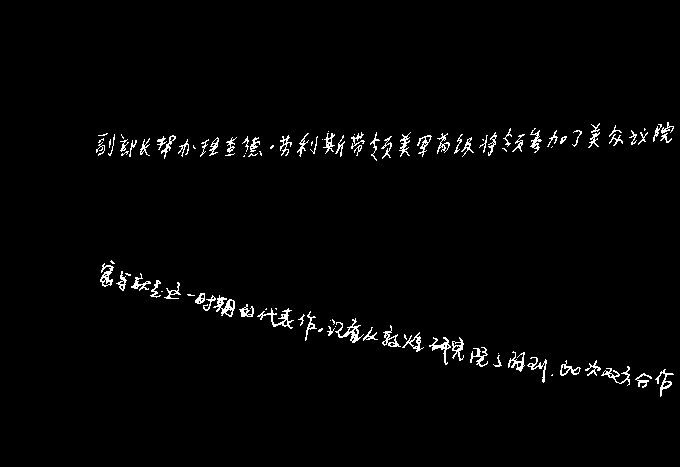 副部长帮办理查德·劳利斯带领美军高级将领参加了美众议院
窟等就是这一时期的代表作。记者从敦煌研究院了解到，此次双方合作